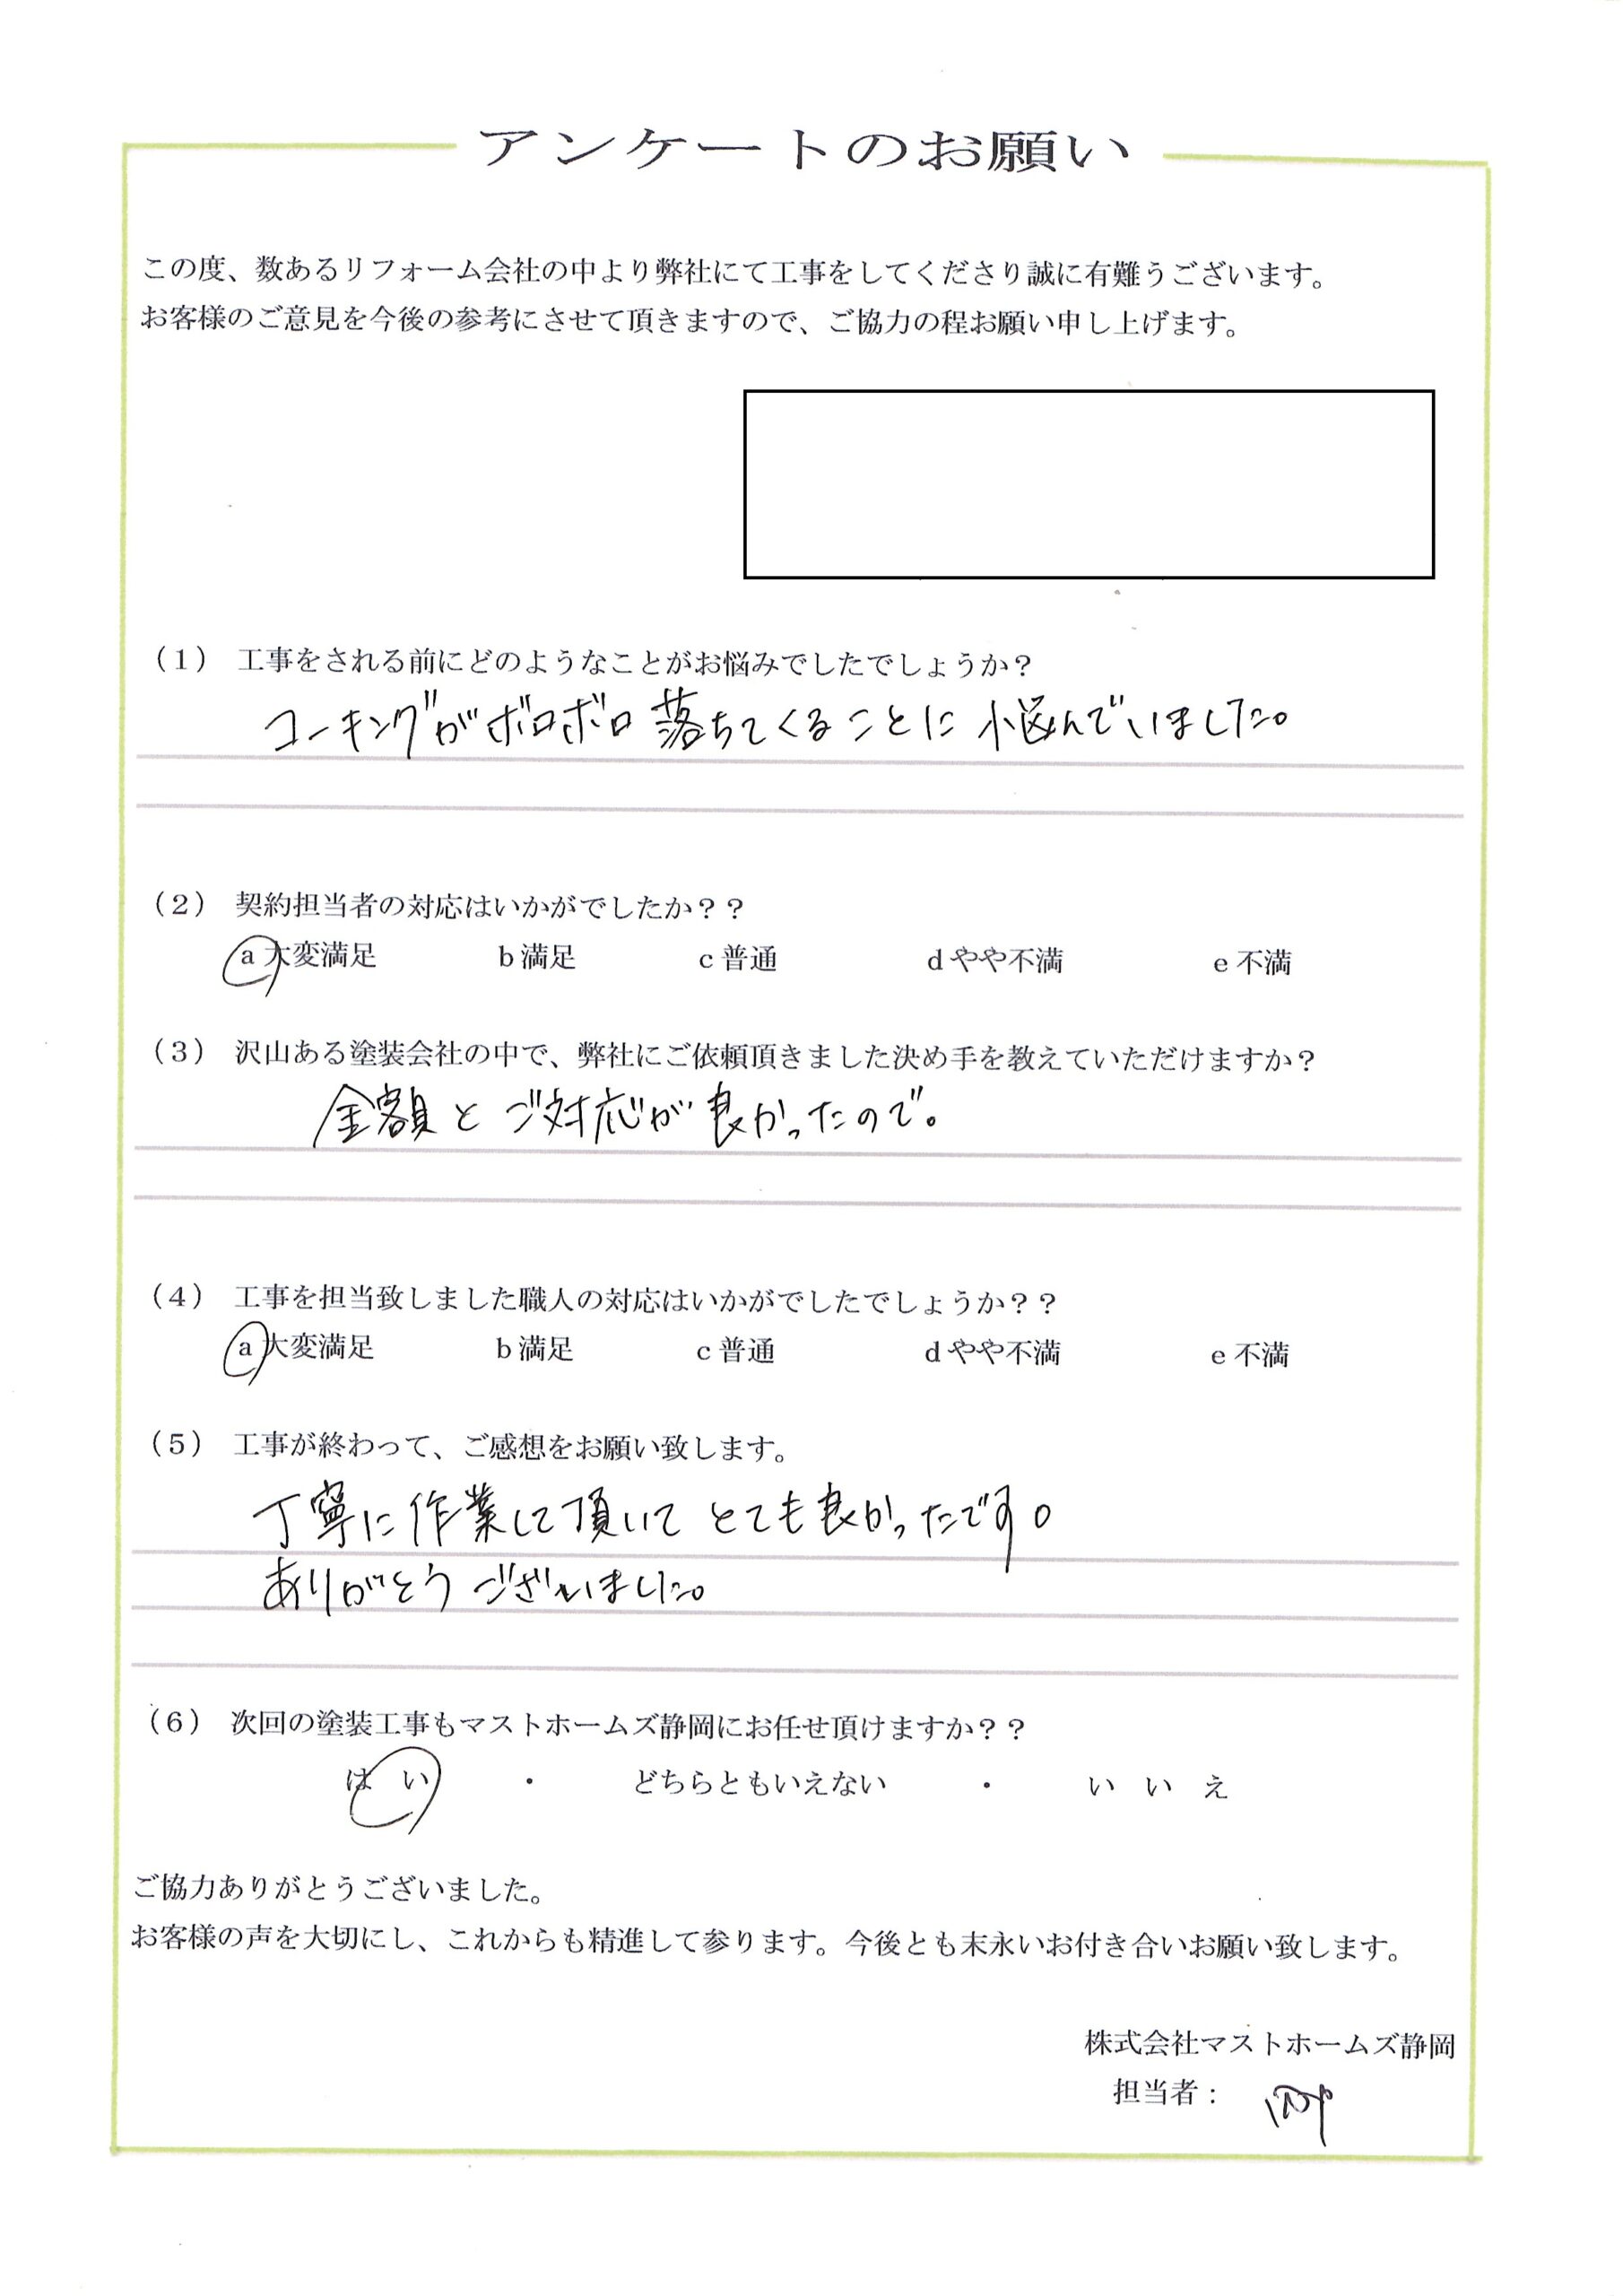 アンケートのお願い
この度、数あるリフォーム会社の中より弊社にて工事をしてくださり誠に有難うございます。
お客様のご意見を今後の参考にさせて頂きますので、ご協力の程お願い申し上げます。
（1） 工事をされる前にどのようなことがお悩みでしたでしょうか？
コーキングがボロボロ落ちてくることに悩んでいました。
（2） 契約担当者の対応はいかがでしたか？？
a 大変満足 b 満足 c 普通 d やや不満 e 不満
（3） 沢山ある塗装会社の中で、弊社にご依頼頂きました決め手を教えていただけますか？
金額とご対応が良かったので。
（4） 工事を担当致しました職人の対応はいかがでしたでしょうか？？
a 大変満足 b 満足 c 普通 d やや不満 e 不満
（5） 工事が終わって、ご感想をお願い致します。
丁寧に作業して頂いてとても良かったです。
ありがとうございました。
（6） 次回の塗装工事もマストホームズ静岡にお任せ頂けますか？？
は い ・ どちらともいえない ・ い い え
ご協力ありがとうございました。
お客様の声を大切にし、これからも精進して参ります。今後とも末永いお付き合いお願い致します。
株式会社マストホームズ静岡
担当者：